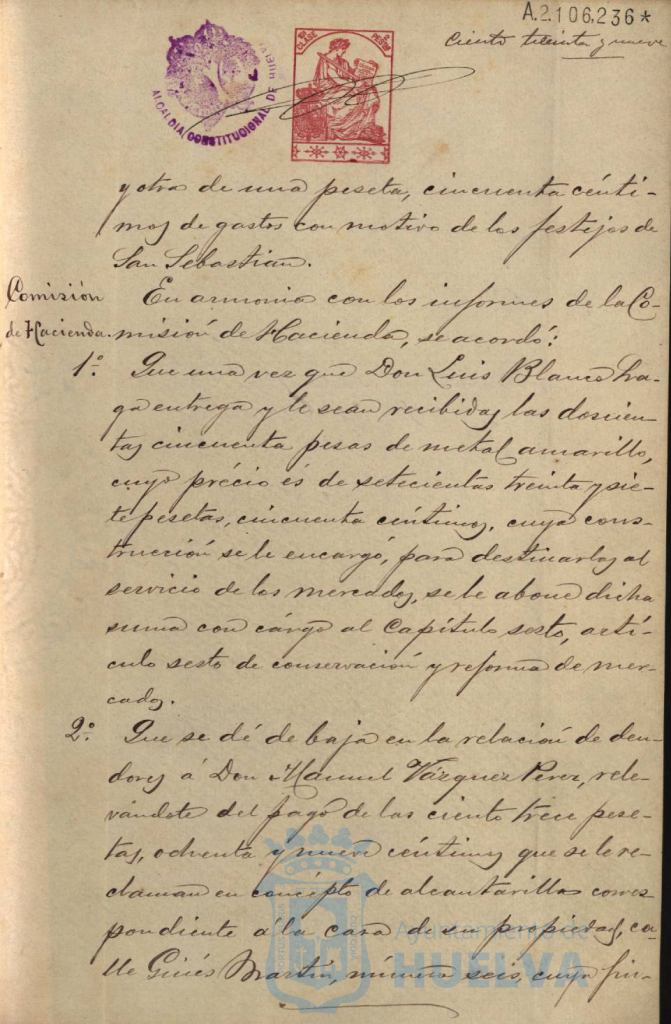 A.2.106,236*
Ciento treinta y nueve
ALCALDIA CONSTITUCIONAL DE HUELVA
y otra de una peseta, cincuenta cénti-
mos de gastos con motivo de los festejos de
San Sebastian.
Comisión
de Hacienda.
En armonia con los informes de la Co-
misión de Hacienda, se acordó:
1º. Que una vez que Don Luis Blanco ha-
ga entrega y le sean recibidas las doscien-
tas cincuenta pesas de metal amarillo,
cuyo précio és de setecientas treinta y sie-
te pesetas, cincuenta céntimos, cuya cons-
trucción se le encargó, para destinarlas al
servicio de los mercados, se le abone dicha
suma con cárgo al Capítulo sesto, artí-
culo sesto de conservación y reforma de mer-
cados.
2º. Que se dé de baja en la relación de deu-
dores á Don Manuel Vázquez Perez, rele-
vándote del pago de las ciento trece pese-
tas, ochenta y nueve céntimos que se le re-
claman en concépto de alcantarillas corres-
pondiente á la casa de su propiedad, ca-
lle Ginés Martín, número seis, cuya fin-
Ayuntamiento de
HUELVA